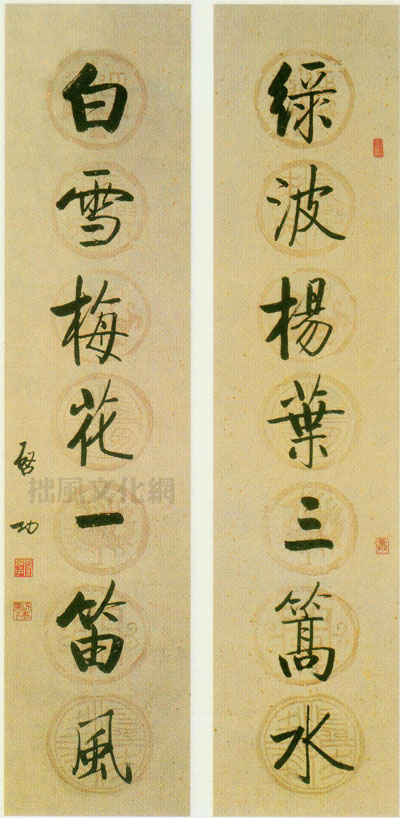 綠波楊葉三篙水
白雪梅花一笛風
啓功
拙風文化網